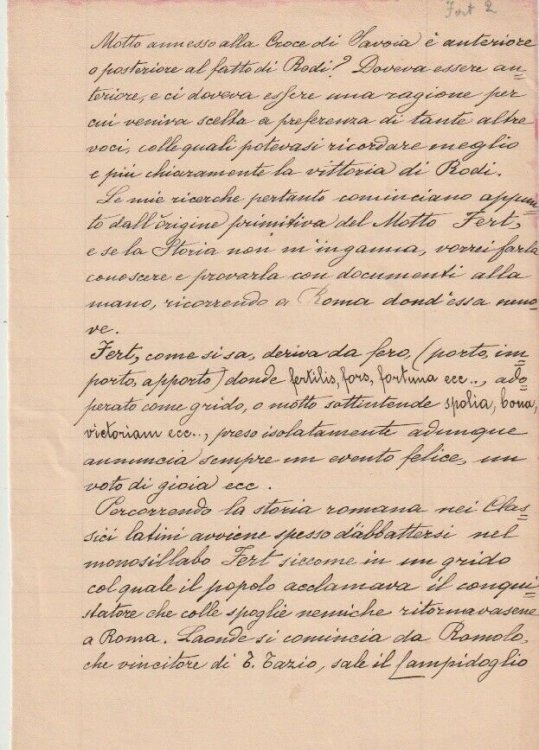 Fert 2
Motto annesso alla Croce di Savoia è anteriore
o posteriore al fatto di Rodi? Doveva essere an=
teriore, e ci doveva essere una ragione per
cui veniva scelta a preferenza di tante altre
voci, colle quali potevasi ricordare meglio
e più chiaramente la vittoria di Rodi.
Le mie ricerche pertanto cominciano appun=
to dall'origine primitiva del Motto Fert,
e se la Storia non m'inganna, vorrei farla
conoscere e provarla con documenti alla
mano, ricorrendo a Roma dond'essa
ve.
Fert, come si sa, deriva da fero, (porto, im=
porto, apporto) donde fertilis, fors, fortuna ecc.., ado=
perato come grido, o motto sottintende spolia, bona,
victoriam ecc.., preso isolatamente adunque
annuncia sempre un evento felice, un
voto di gioia ecc.
Percorrendo la storia romana nei Clas=
sici latini avviene spesso d'abbattersi nel
monosillabo Fert siccome in un grido
col quale il popolo acclamava il conqui=
statore che colle spoglie nemiche ritornavasene
a Roma. Laonde si comincia da Romolo,
che vincitore di T. Tazio, sale il Campidoglio